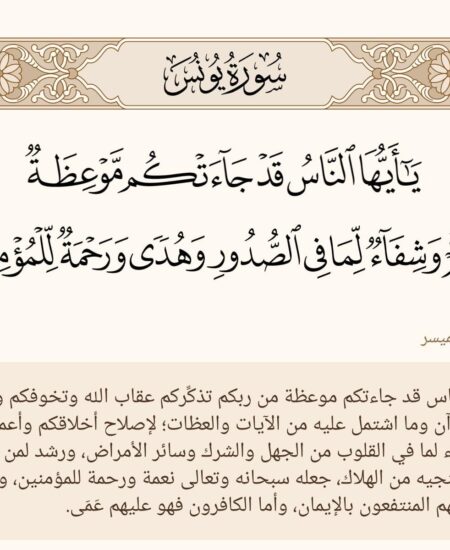 سُورَةُ يُونُسَ
يَٰٓأَيُّهَا ٱلنَّاسُ قَدۡ جَآءَتۡكُم مَّوۡعِظَةٞ
وَشِفَآءٞ لِّمَا فِي ٱلصُّدُورِ وَهُدٗى وَرَحۡمَةٞ
ناس قد جاءتكم موعظة من ربكم تذكِّركم عقاب الله وتخوفكم
وما اشتمل عليه من الآيات والعظات؛ لإصلاح أخلاقكم
لما في القلوب من الجهل والشرك وسائر الأمراض، ورشد لمن
من الهلاك، جعله سبحانه وتعالى نعمة ورحمة للمؤمنين،
المنتفعون بالإيمان، وأما الكافرون فهو عليهم عَمَى.